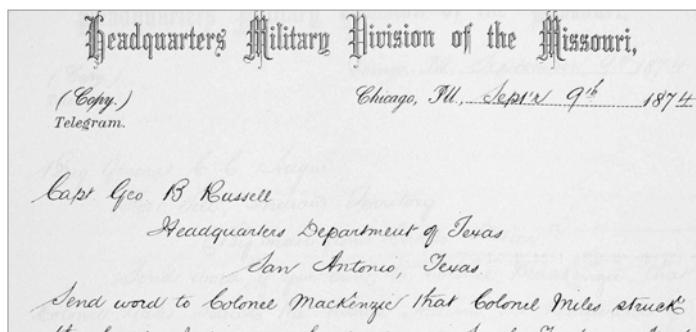 Headquarters Military Division of the Missouri,
(Copy.)
Chicago, Ill., Sept'r 9th 1874
Telegram.
Capt Geo B Russell
Headquarters Department of Texas
San Antonio, Texas
Send word to Colonel Mackenzie that Colonel Miles struck